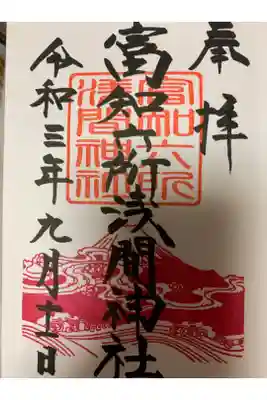 奉拝
富知六所浅間神社
富知六所
淺間神社
令和三年九月十一日